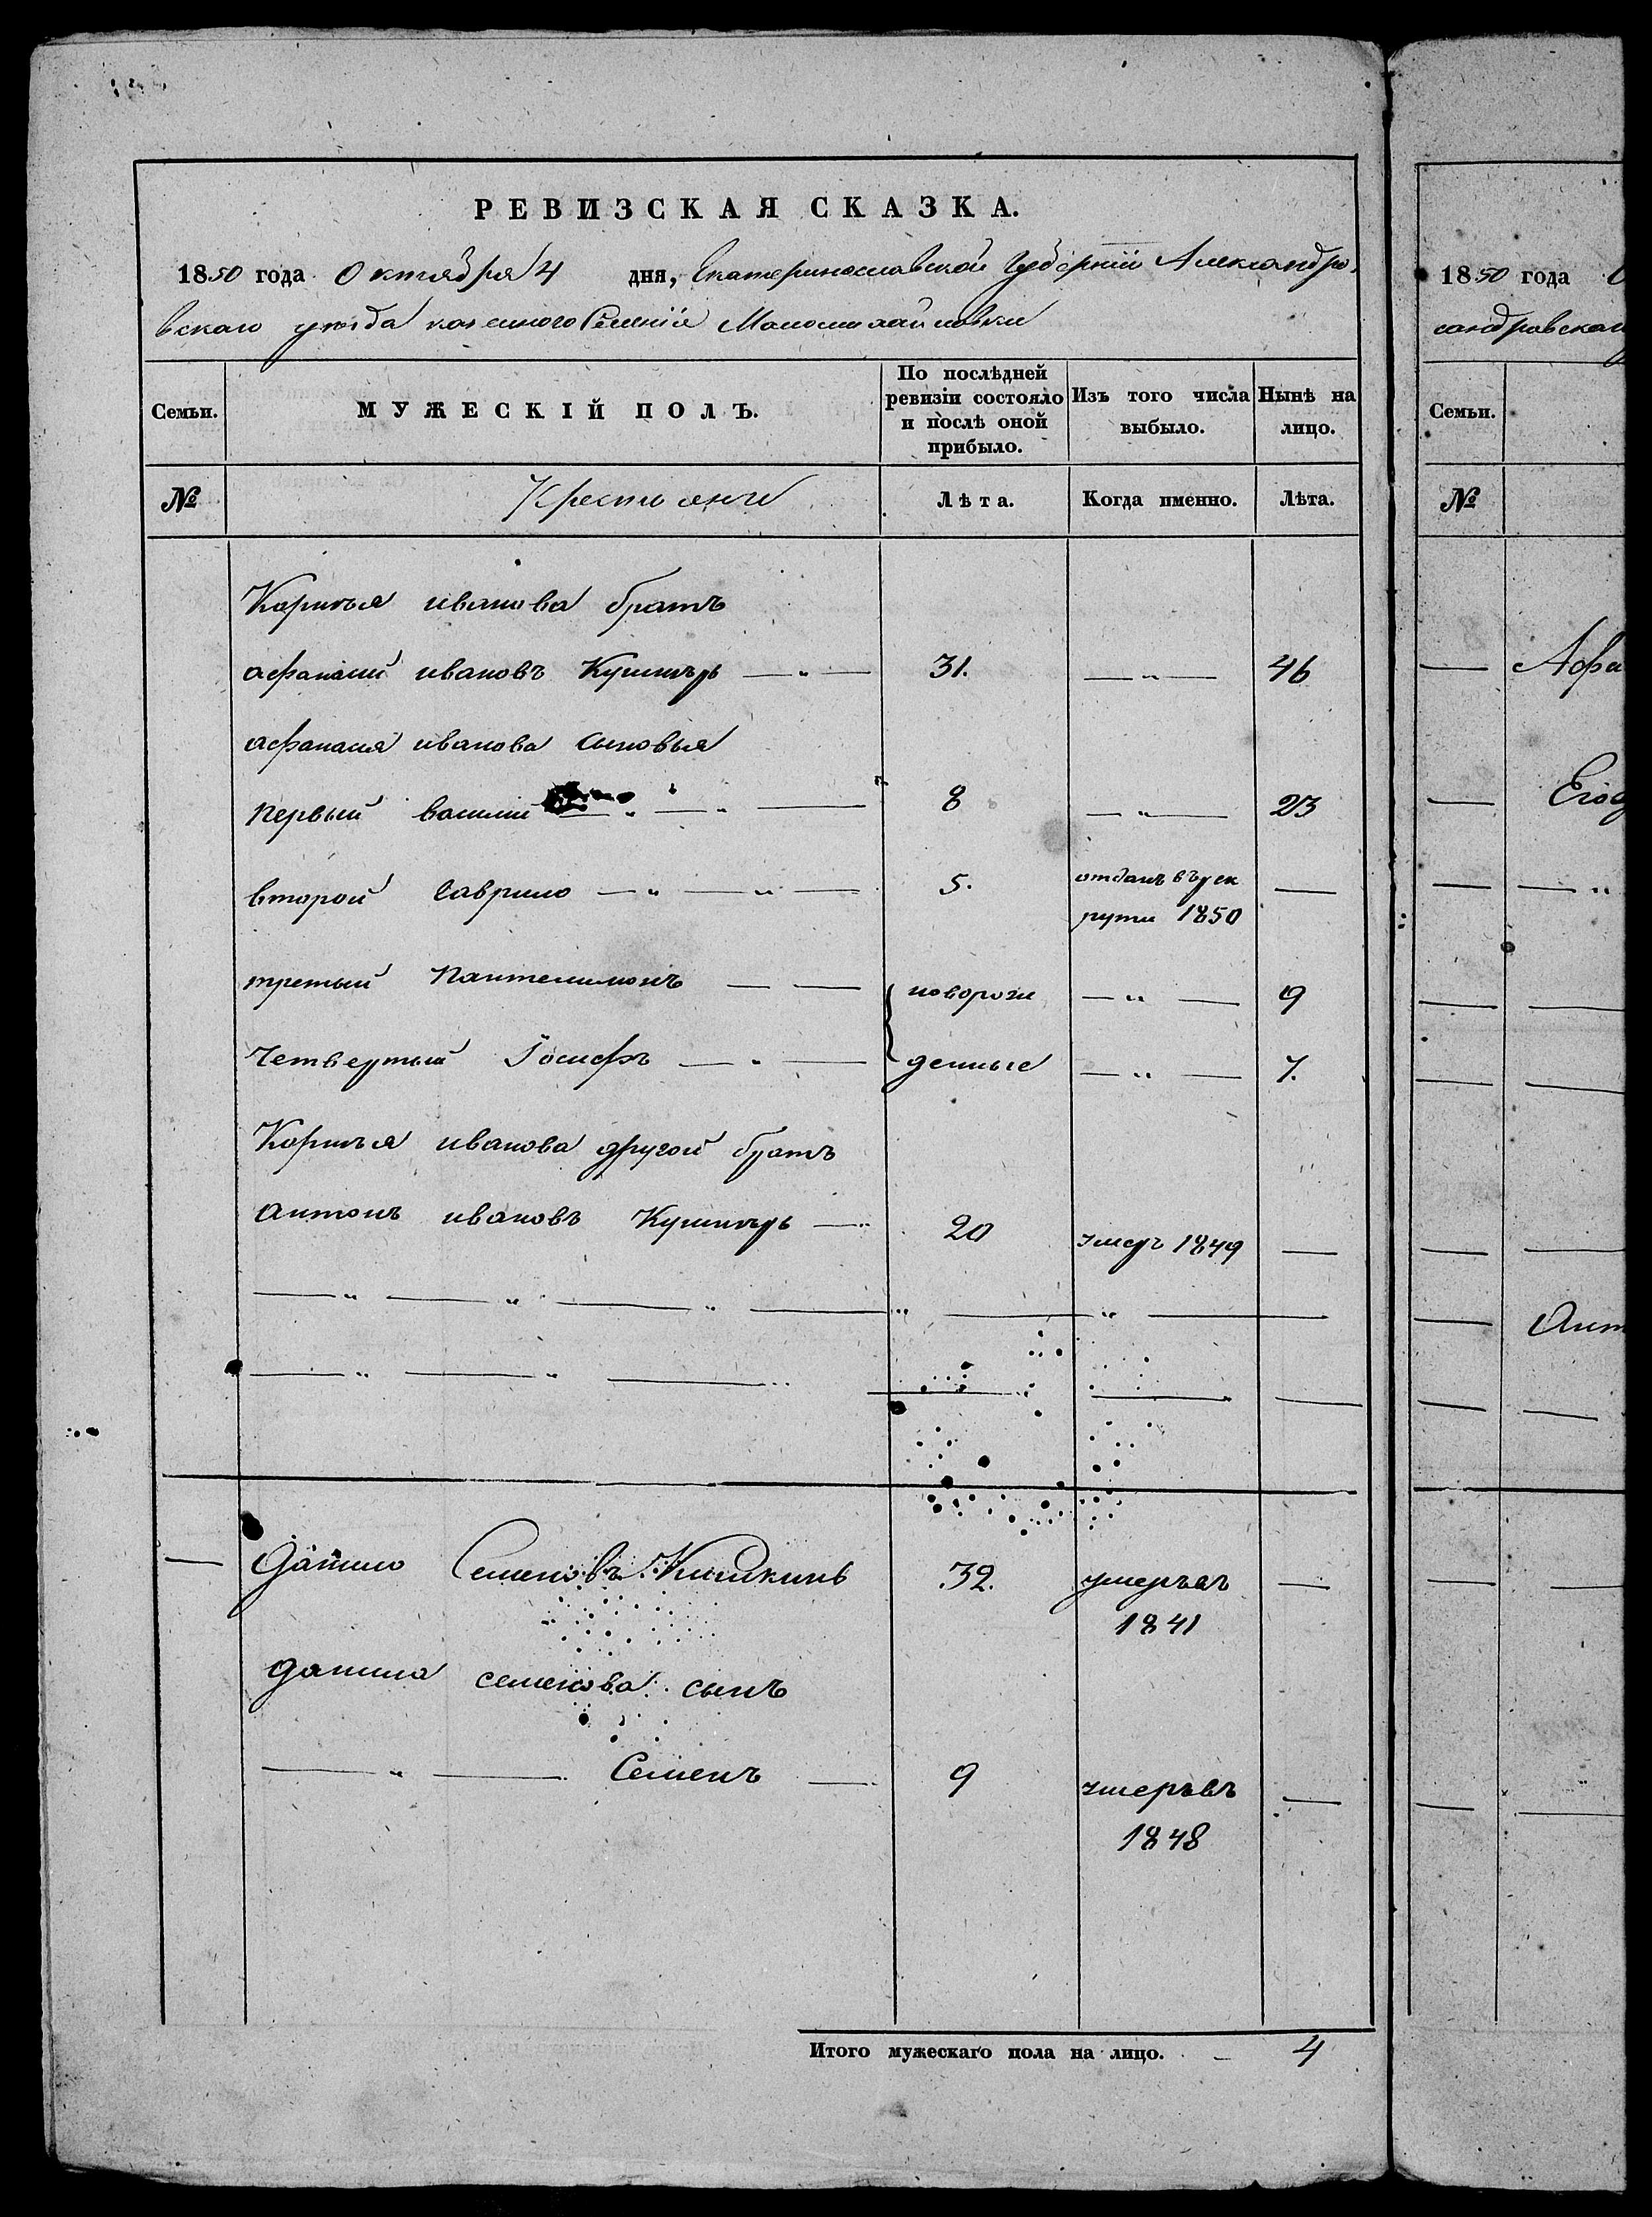 РЕВИЗСКАЯ СКАЗКА.
1850 года Октября 4 дня, Екатеринославской Губернии Александро-
вскаго уезда казенного Селения Маломихайловки
Семьи. МУЖЕСКІЙ ПОЛЪ. По послѣдней ревизіи состояло и послѣ оной прибыло. Изъ того числа выбыло. Нынѣ на лицо.
№ Крестьяне Лѣта. Когда именно. Лѣта.
Корнѣя иванова братъ
афанасий ивановъ Кушнѣрь — " — 31. — " — 46
афанасия иванова сыновья
первый василий — " — " — 8 — " — 23
второй Гаврило — " — " — 5. отданъ въ рек
рути 1850 —
третый Пантелимонъ — — новорож — " — 9
Четвертый Іосифъ — " — денные — " — 7.
Корнѣя иванова другой братъ
антонъ ивановъ Кушнѣрь — " 20 умеръ 1849 —
— Данило Семеновъ Кишкинь 32. умеръ въ —
1841
данила семенова сынъ
— " — Семенъ — 9 умеръ въ —
1848
Итого мужескаго пола на лицо. — 4
1850 года
сандровскаг
Семьи.
№
— Афа
—
— — "
— —
— —
— —
— Ант
— —
— —
— —